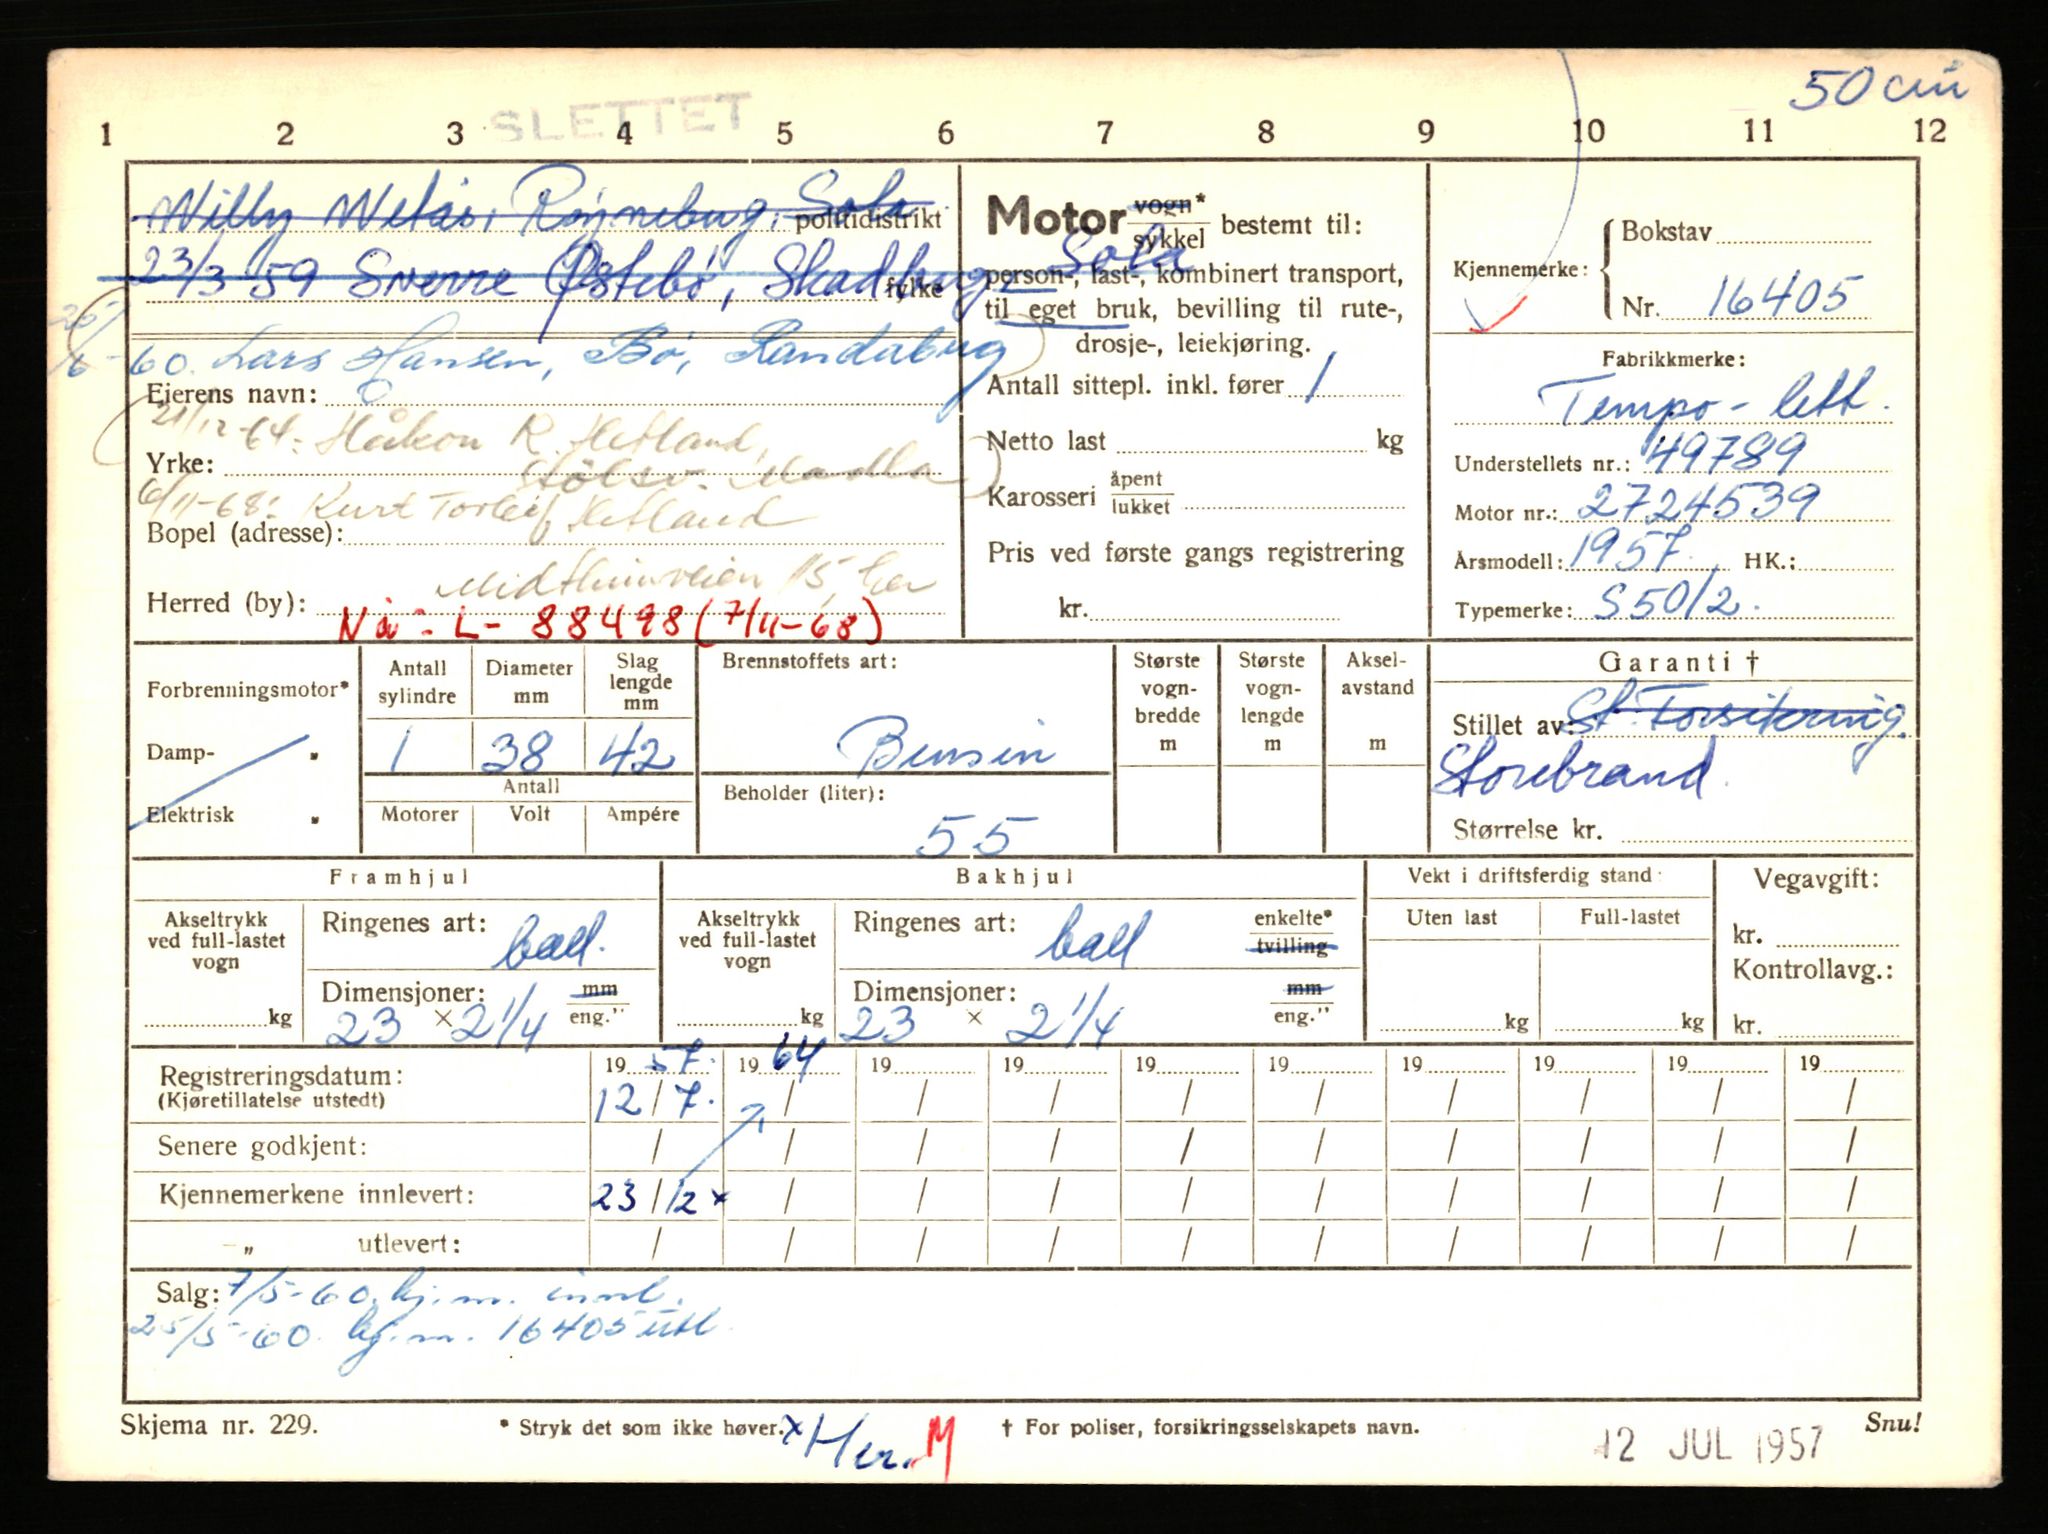 50 cm
SLETTET
1 2 3 4 5 6 7 8 9 10 11 12
Willy Welås, Røyneberg, Sola
politidistrikt
23/3 59 Sverre Østebø, Skadberg, Sola
fylke
/6-60. Lars Hansen, Bø, Randaberg
Eierens navn:
21/12-64: Håkon R. Hetland,
Yrke: Madla
6/11-68: Kurt Torleif Hetland
Bopel (adresse):
15, her
Herred (by):
Nå: L- 88498 (7/11-68)
Motor vogn* / sykkel bestemt til:
person-, last-, kombinert transport,
til eget bruk, bevilling til rute-,
drosje-, leiekjøring.
Antall sittepl. inkl. fører 1
Netto last kg
Karosseri åpent / lukket
Pris ved første gangs registrering
kr.
Kjennemerke: Bokstav
Nr. 16405
Fabrikkmerke:
Tempo-lett.
Understellets nr.: 49789
Motor nr.: 2724539
Årsmodell: 1957. HK.:
Typemerke: S50/2.
Forbrenningsmotor*
Damp- „
Elektrisk „
Antall sylindre
Diameter mm
Slag lengde mm
1 38 42
Antall
Motorer Volt Ampére
Brennstoffets art:
Bensin
Beholder (liter):
55
Største vogn-bredde m
Største vogn-lengde m
Aksel-avstand m
Garanti †
Stillet av: St. Forsikring.
Storebrand.
Størrelse kr.
Framhjul
Akseltrykk ved full-lastet vogn
kg
Ringenes art: ball.
Dimensjoner: mm / eng."
23 × 2 1/4
Bakhjul
Akseltrykk ved full-lastet vogn
kg
Ringenes art: ball enkelte* / tvilling
Dimensjoner: mm / eng."
23 × 2 1/4
Vekt i driftsferdig stand:
Uten last Full-lastet
kg kg
Vegavgift:
kr.
Kontrollavg.:
kr.
19 57. 19 64 19 19 19 19 19 19 19 19
Registreringsdatum: 12/7. / / / / / / / / /
(Kjøretillatelse utstedt)
Senere godkjent: / / / / / / / / / /
Kjennemerkene innlevert: 23/12 x / / / / / / / / /
–„ utlevert: / / / / / / / / / /
Salg: 7/5-60 kj.m. innl.
25/5-60. kj.m. 16405 utl.
Skjema nr. 229.
* Stryk det som ikke høver.
x Her. M
† For poliser, forsikringsselskapets navn.
12 JUL 1957
Snu!